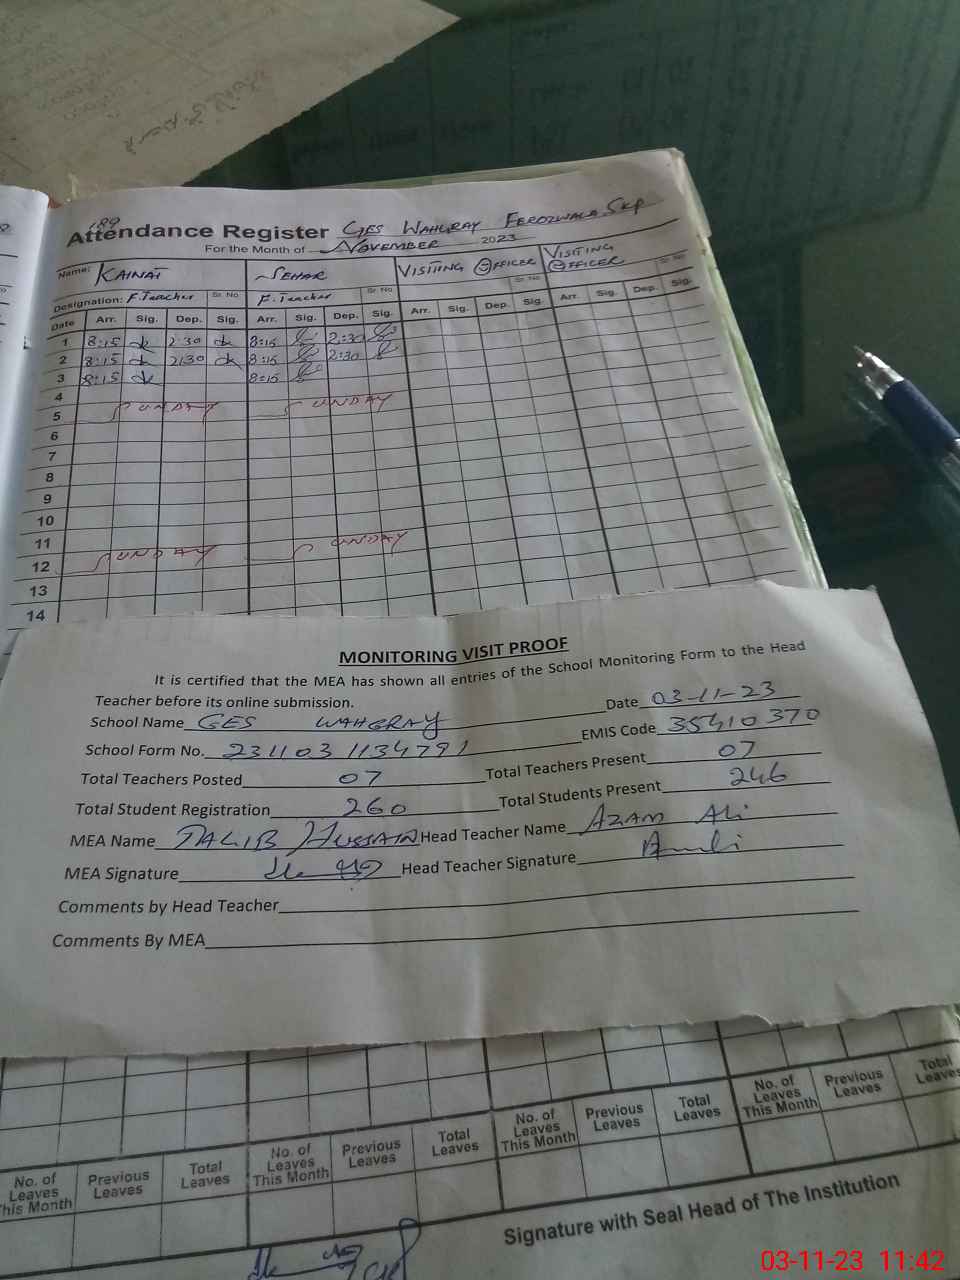 189
Attendance Register GES WAHGRAY FEROZWALA SKP
For the Month of NOVEMBER 2023
Name: KAINAT SEHAR VISITING OFFICER VISITING OFFICER
Designation: F.Teacher Sr No F.Teacher Sr No Sr No Sr No
Date Arr. Sig. Dep. Sig. Arr. Sig. Dep. Sig. Arr. Sig. Dep. Sig. Arr. Sig. Dep. Sig.
1 8:15 2:30 8:15 2:30
2 8:15 2:30 8:15 2:30
3 8:15 8:15
4
5 SUNDAY SUNDAY
6
7
8
9
10
11
12 SUNDAY SUNDAY
13
14
MONITORING VISIT PROOF
It is certified that the MEA has shown all entries of the School Monitoring Form to the Head
Teacher before its online submission.
Date 03-11-23
School Name GES WAHGRAY
EMIS Code 35410370
School Form No. 231103 1134791
Total Teachers Posted 07 Total Teachers Present 07
Total Student Registration 260 Total Students Present 246
MEA Name TALIB HUSSAIN Head Teacher Name AZAM Ali
MEA Signature Head Teacher Signature
Comments by Head Teacher
Comments By MEA
No. of Leaves This Month Previous Leaves Total Leaves No. of Leaves This Month Previous Leaves Total Leaves No. of Leaves This Month Previous Leaves Total Leaves No. of Leaves This Month Previous Leaves Total Leaves
Signature with Seal Head of The Institution
03-11-23 11:42